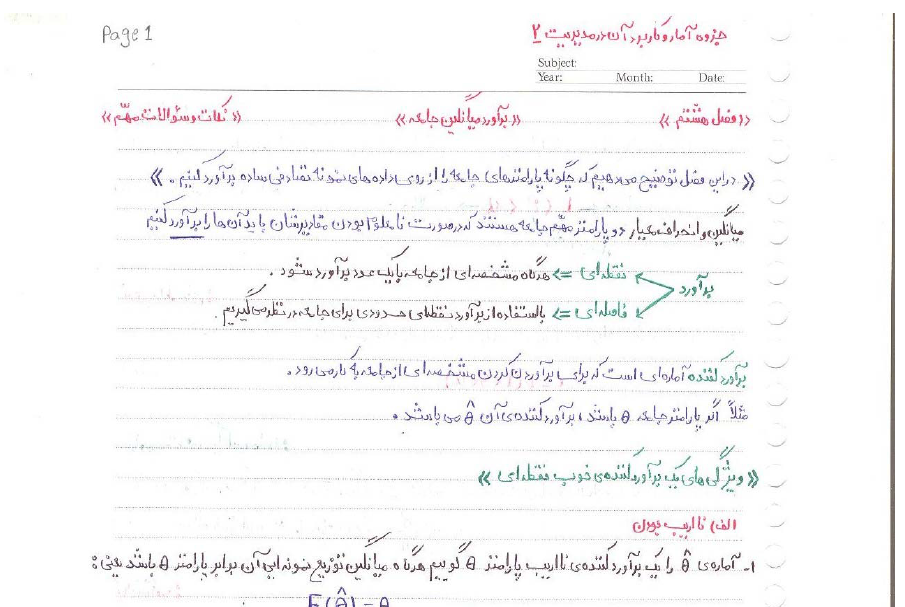 Page 1
جزوه آمار و کاربرد آن در مدیریت ۲
Subject:
Year: Month: Date:
«فصل هشتم» «برآورد میانگین جامعه» «نکات و سؤالات مهّم»
«در این فصل توضیح می‌دهیم که چگونه پارامترهای جامعه را از روی داده‌های نمونه تصادفی ساده برآورد کنیم.»
میانگین و انحراف معیار دو پارامتر مهّم جامعه هستند که در صورت نامعلوم بودن مقادیرشان باید آن‌ها را برآورد کنیم
برآورد
نقطه‌ای => هرگاه مشخصه‌ای از جامعه با یک عدد برآورد شود.
فاصله‌ای => بااستفاده از برآورد نقطه‌ای حدودی برای جامعه در نظر می‌گیریم.
برآورد کننده آماره‌ای است که برای برآورد کردن مشخصه‌ای از جامعه به کار می‌رود.
مثلاً اگر پارامتر جامعه θ باشد، برآورد کننده‌ی آن θ̂ می‌باشد.
«ویژگی‌های یک برآورد کننده‌ی خوب نقطه‌ای»
الف) نااریب بودن
۱- آماره‌ی θ̂ را یک برآورد کننده‌ی نااریب پارامتر θ گوییم هرگاه میانگین توزیع نمونه‌ایی آن برابر پارامتر θ باشد یعنی:
E(θ̂) = θ